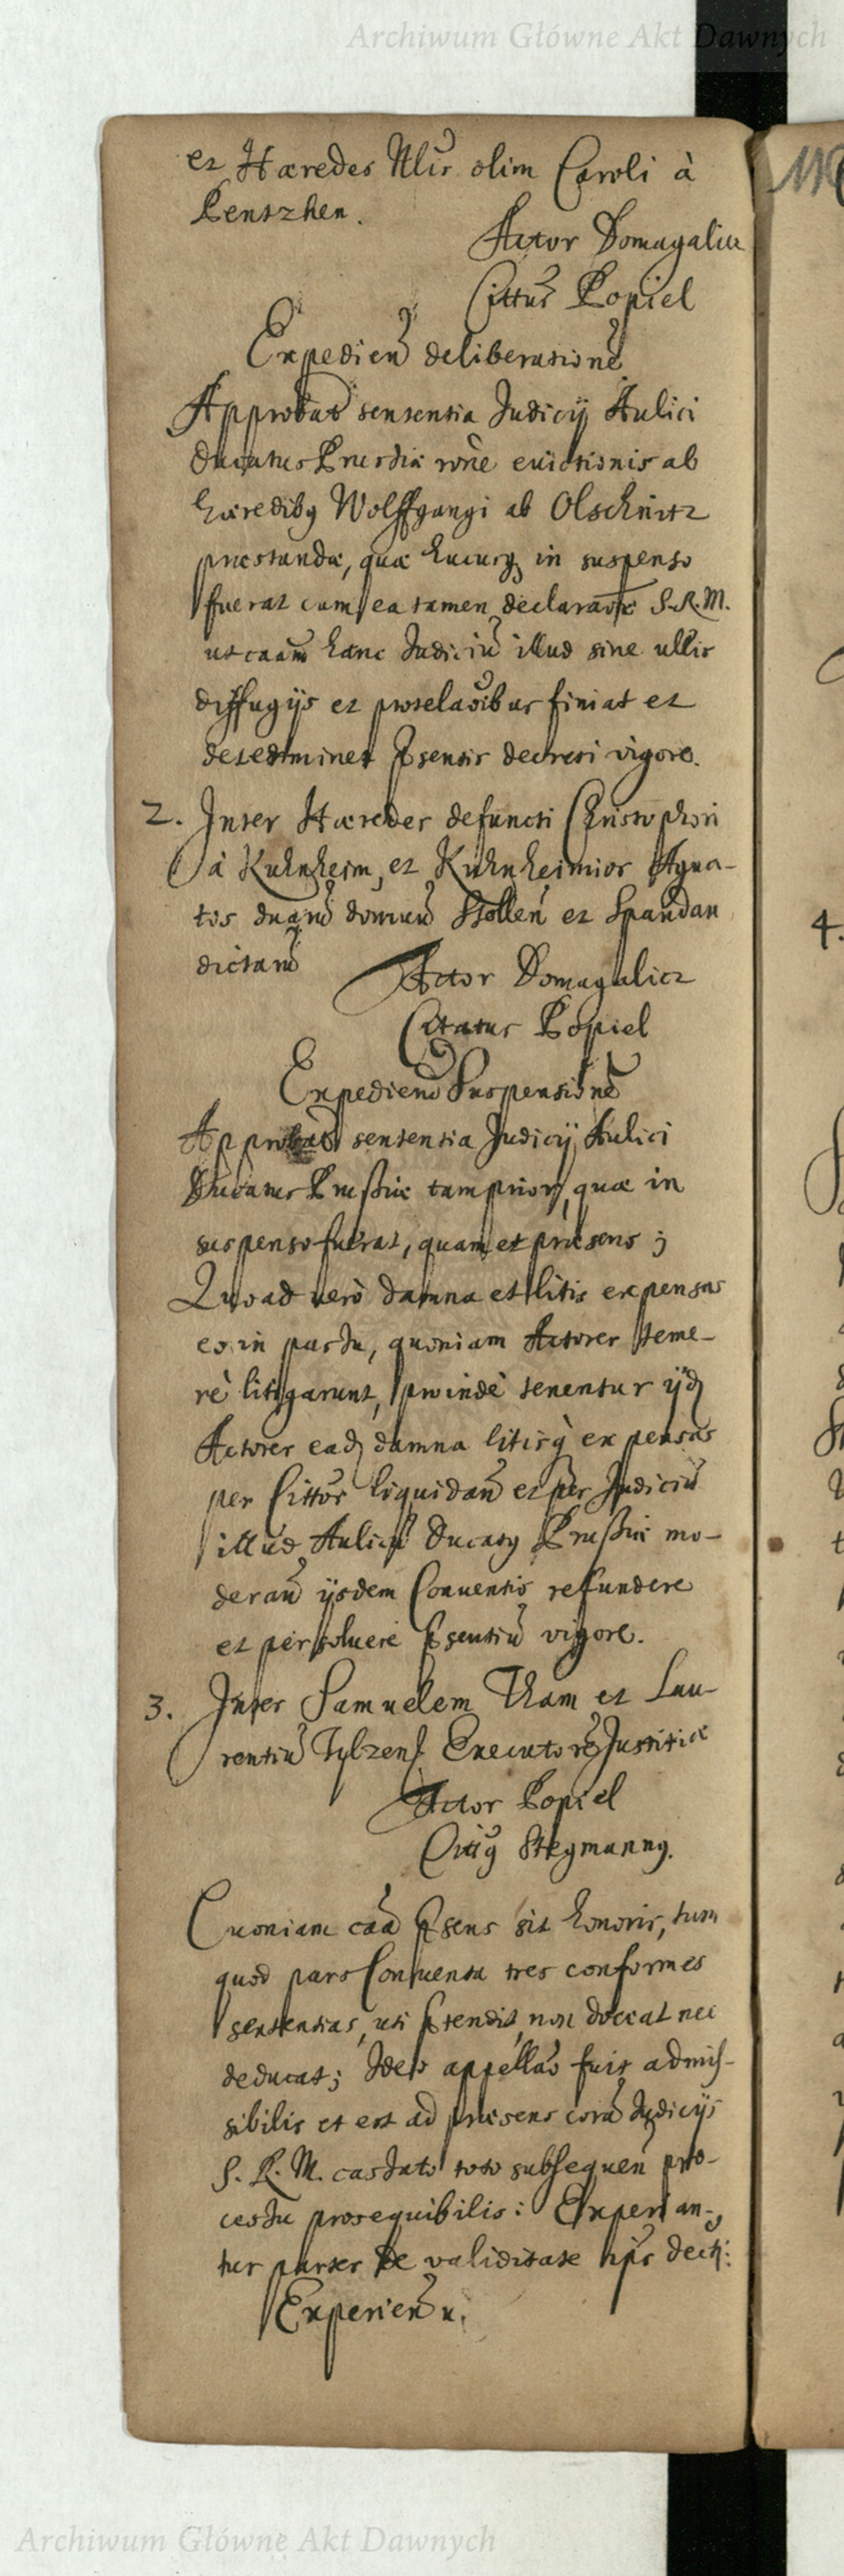 Archiwum Główne Akt Dawnych
et Hæredes Nlis olim Caroli à
Pentzhen.
Actor Domagalicz
Cittus Popiel
Expedien deliberationē
Approbat sententia Judicij Aulici
Ducatus Prussiæ rōne euictionis ab
hæredibg Wolffgangi ab Olschnitz
præstandæ, quæ hucusq in suspenso
fuerat cum ea tamen declaraōe S.R.M.
ut caam hanc Judiciū illud sine ullis
diffugijs et protelaōibus finiat et
determinet Psentis decreti vigore.
2. Inter Hæredes defuncti Christophori
à Kuhnheim, et Kuhnheimios Agna-
tos domum Stollen et Spandau
dictam
Actor Domagalicz
Citatus Popiel
Expedien Suspensionē
Approbat sententia Judicij Aulici
Ducatus Prussiæ tam prior, quæ in
suspenso fuerat, quam et præsens;
Quoad verò damna et litis expensas
eo in passu, quoniam Actores teme-
rè litigarunt, proindè tenentur ijd
Actores ead damna litisq expensas
per Cittos liquidan et per Judiciū
illud Aulicū Ducatg Prussiæ mo-
deran ijsdem Conuentis refundere
et persoluere Psentiū vigore.
3. Inter Samuelem Tham et Lau-
rentiū Tylzen Executorē Justitiæ
Actor Popiel
Cittg Stegmanng.
Quoniam caā Psens sit honoris, tum
quod pars Conuenta tres conformes
sententias, uti Ptendit, non doceat nec
deducat; Ideo appellaō fuit admis-
sibilis et est ad præsens corā Judicijs
S. R. M. cassato toto subsequen pro-
cessu prosequibilis: Experian-
tur partes de validitate ips decti:
Experien n.
4.
Archiwum Główne Akt Dawnych